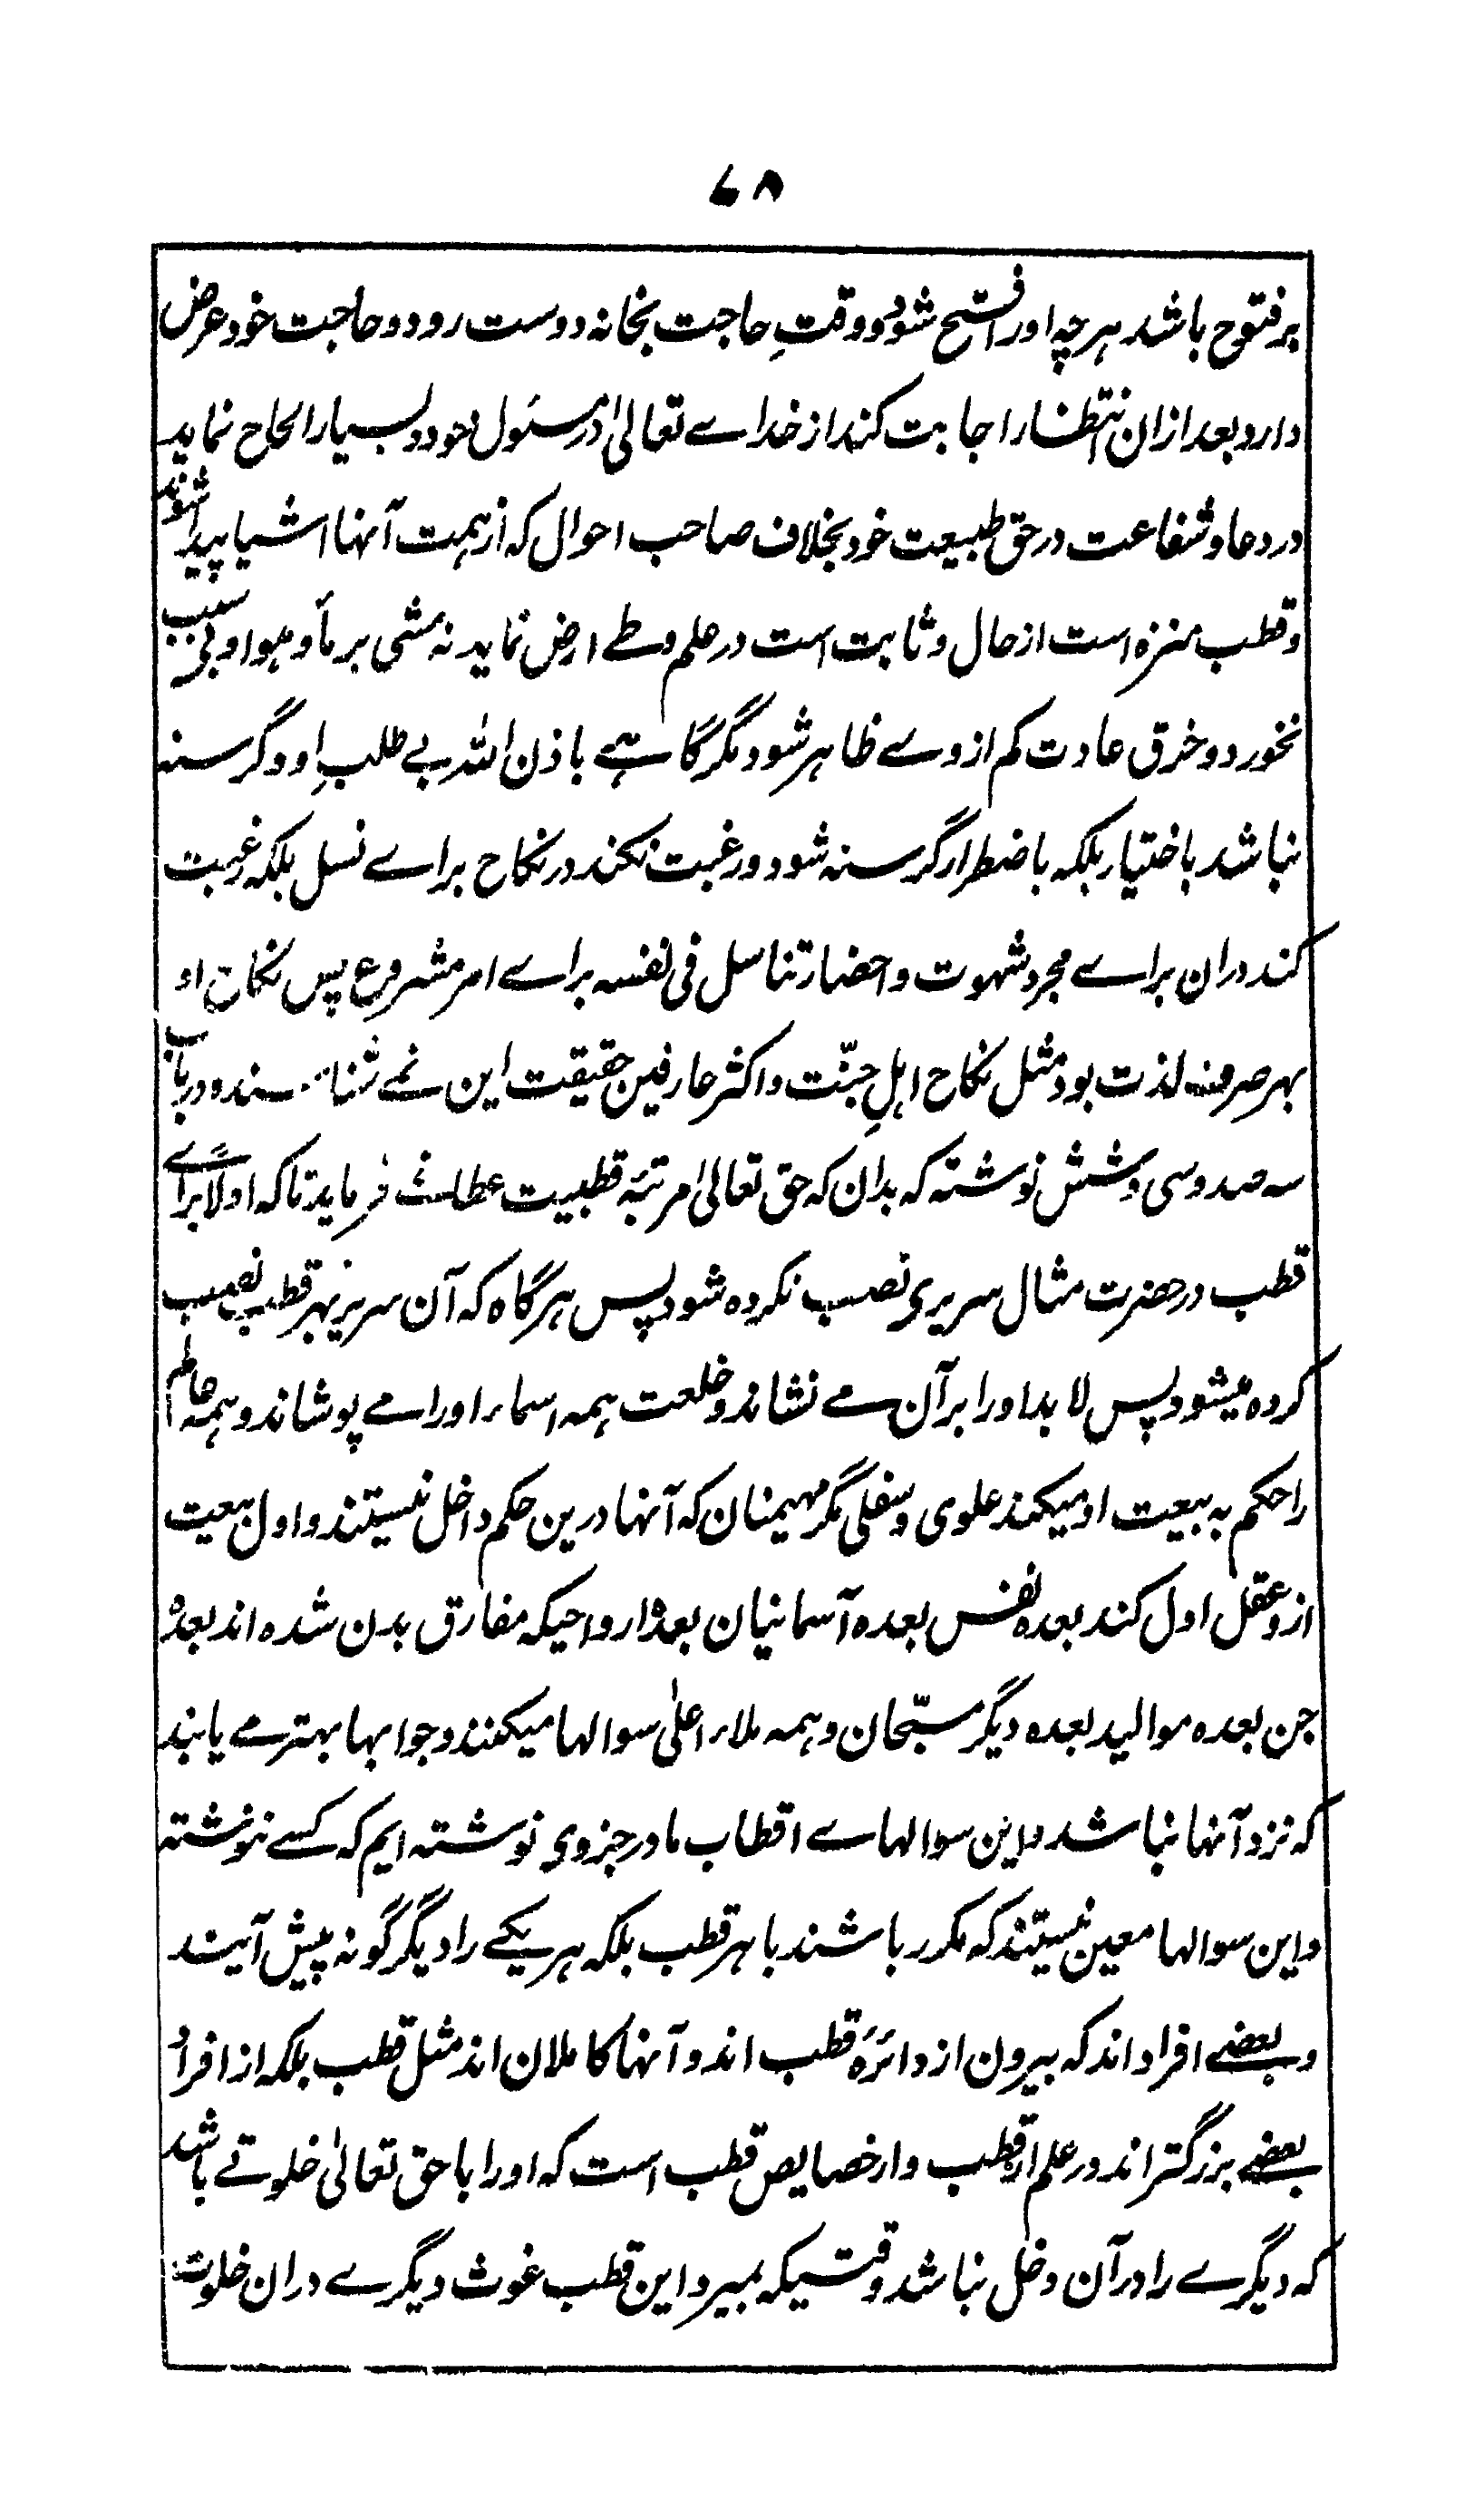 ۷۸
بر فتوح باشد هر چه او را فتح شود و وقتِ حاجت بخانه دوست رود و حاجت خود عرض
دارد بعد ازان انتظار اجابت کند از خداے تعالیٰ در مسئول خود و بسیار الحاح نماید
در دعا و شفاعت در حق طبیعت خود بخلاف صاحب احوال که از همت آنها اشیا پیدا شوند
و قطب منزه است از حال و ثابت است در علم و طے ارض نماید نه مشی بر ماء و هوا و بی سبب
نخورد و خرق عادت کم از وے ظاهر شود مگر گاہے باذن الله بے طلبِ او و گرسنه
نباشد باختیار بلکه باضطرار گرسنه شود و رغبت نکند در نکاح براے نسل بلکه رغبت
کند دران براے مجرد شهوت و احضار تناسل فی نفسه براے امر مشروع پس نکاح او
بهر صرف لذت بود مثل نکاح اهلِ جنّت و اکثر عارفین حقیقت این نمے شناسند و در باب
سه صد و سی و شش نوشته که بدان که حق تعالیٰ مرتبۂ قطبیت عطا نے فرماید تا که اولاً براے
قطب در حضرت مثال سریری نصب نکرده شود پس هرگاه که آن سریر بهر قطب نصب
کرده میشود پس لابد او را برآن مے نشاند و خلعت همه اسماء او را مے پوشاند و همه عالم
را حکم به بیعت او میکند علوی و سفلی مگر مهیمنان که آنها درین حکم داخل نیستند و اول بیعت
ازو عقل اول کند بعده نفس بعده آسمانیان بعدۂ ارواحیکه مفارق بدن شده اند بعدۂ
جن بعده موالید بعده دیگر مسبّحان و همه ملاء اعلیٰ سوالها میکنند و جوابها بهتر مے یابند
که نزد آنها نباشد و این سوالهاے اقطاب ما در جزوی نوشته ایم که کسے ننوشته
و این سوالها معین نیستند که مکرر باشند با هر قطب بلکه هر یکے را دیگر گونه پیش آیند
و بعضے افراد اند که بیرون از دائرۂ قطب اند و آنها کاملان اند مثل قطب بلکه از افراد
بعضے بزرگتر اند در علم از قطب و از خصایص قطب است که او را با حق تعالیٰ خلوتے باشد
که دیگرے را در آن دخل نباشد وقتیکه بمیرد این قطب غوث دیگرے دران خلوت